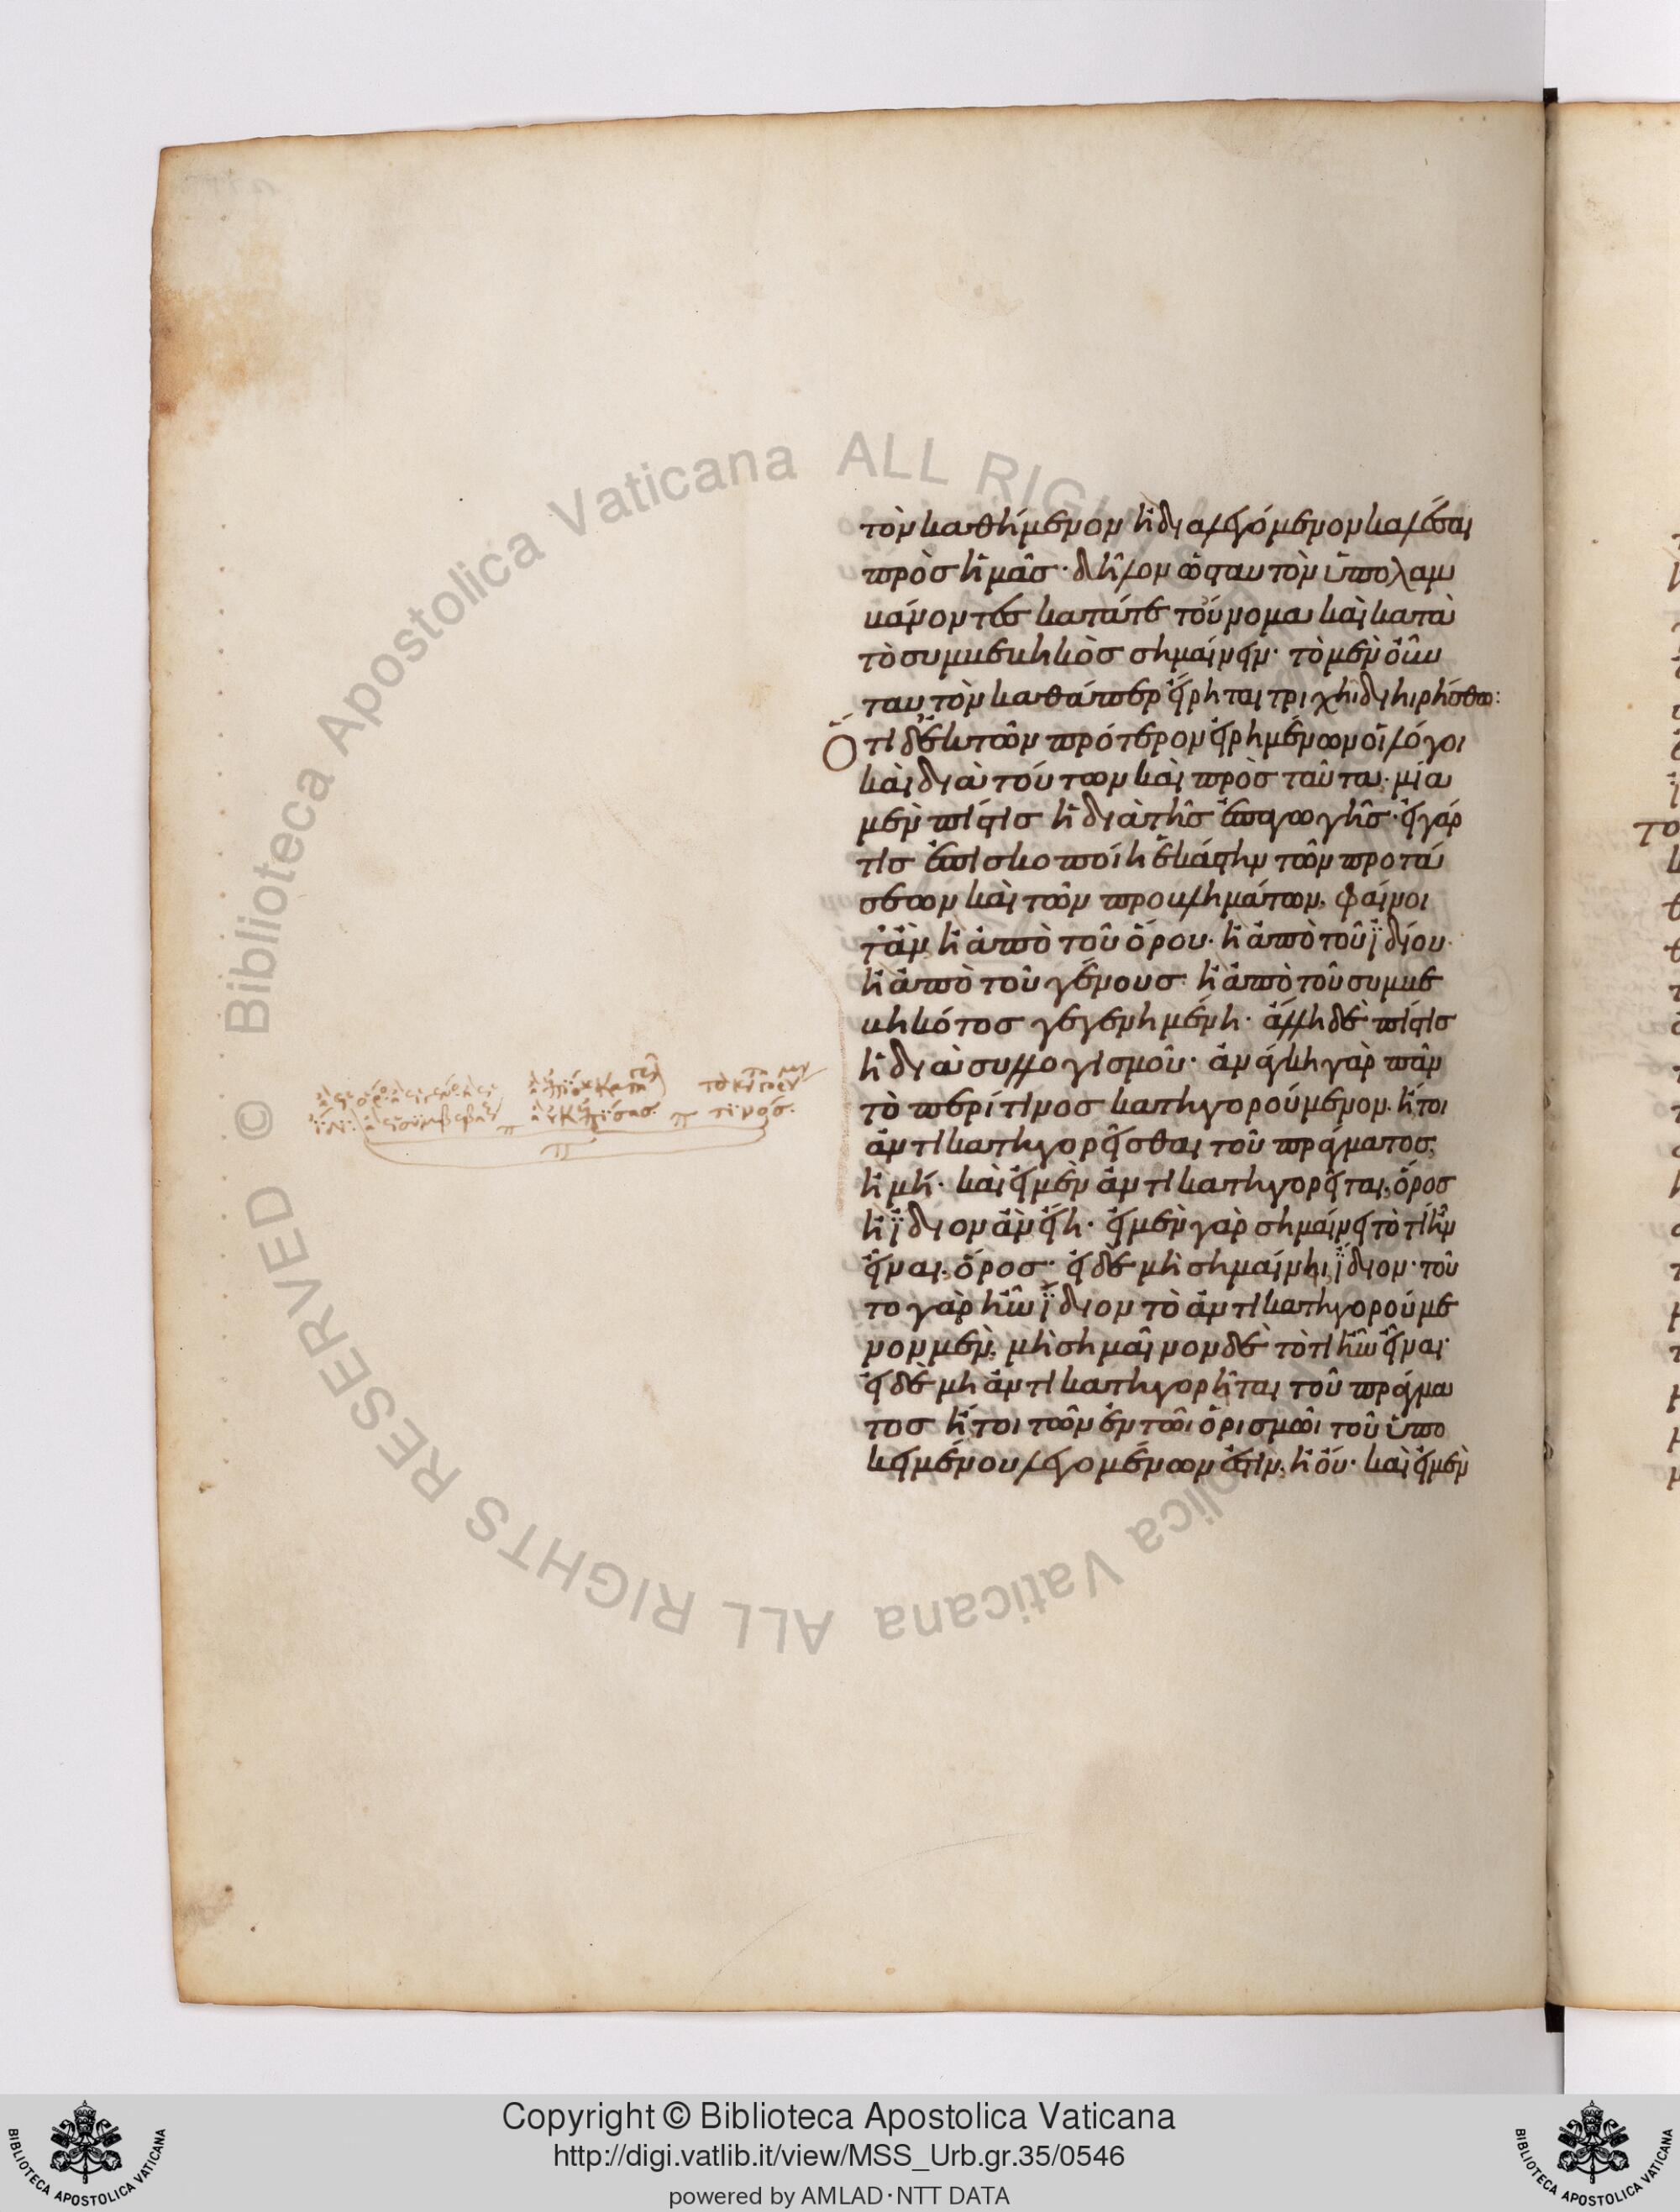 τὸν καθήμενον ἢ διαλεγόμενον καλέσαι
πρὸς ἡμᾶς· δῆλον ὡς ταυτὸν ὑπολαμ
βάνοντες κατάτε τοὔνομα καὶ κατὰ
τὸ συμβεβηκὸς σημαίνειν· τὸ μὲν οὖν
ταυτὸν καθάπερ εἴρηται τριχῆι διηιρήσθω:
Ὅτι δ' ἐκ τῶν πρότερον εἰρημένων οἱ λόγοι
καὶ διὰ τούτων καὶ πρὸς ταῦτα· μία
μὲν πίστις ἡ διὰ τῆς ἐπαγωγῆς· εἰ γάρ
τις ἐπισκοποίη ἑκάστην τῶν προτά
σεων καὶ τῶν προβλημάτων, φαίνοι
τ' ἂν, ἢ ἀπὸ τοῦ ὅρου· ἢ ἀπὸ τοῦ ἰδίου·
ἢ ἀπὸ τοῦ γένους· ἢ ἀπὸ τοῦ συμβε
βηκότος γεγενημένη· ἄλλη δὲ πίστις
ἡ διὰ συλλογισμοῦ· ἀνάγκη γὰρ πᾶν
τὸ περί τινος κατηγορούμενον· ἤτοι
ἀντικατηγορεῖσθαι τοῦ πράγματος,
ἢ μή· καὶ εἰ μὲν ἀντικατηγορεῖται, ὅρος
ἢ ἴδιον ἂν εἴη· εἰ μὲν γὰρ σημαίνει τὸ τί ἦν
εἶναι, ὅρος· εἰ δὲ μὴ σημαίνηι, ἴδιον· τοῦ
το γὰρ ἦν ἴδιον τὸ ἀντικατηγορούμε
νον μὲν, μὴ σημαῖνον δὲ τὸ τί ἦν εἶναι·
εἰ δὲ μὴ ἀντικατηγορῆται τοῦ πράγμα
τος ἤτοι τῶν ἐν τῶι ὁρισμῶι τοῦ ὑπο
κειμένου λεγομένων ἐστὶν, ἢ οὔ· καὶ εἰ μὲν
© Biblioteca Apostolica Vaticana ALL RIGHTS RESERVED
Copyright © Biblioteca Apostolica Vaticana
http://digi.vatlib.it/view/MSS_Urb.gr.35/0546
powered by AMLAD·NTT DATA
BIBLIOTECA APOSTOLICA VATICANA
BIBLIOTECA APOSTOLICA VATICANA